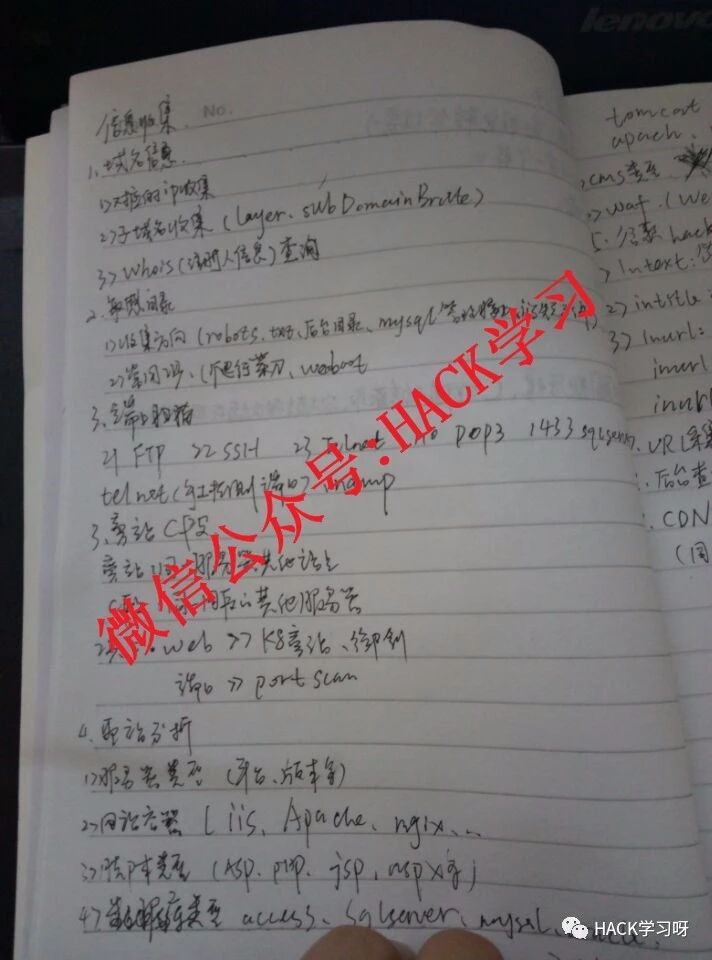 lenovo
信息收集 No.
1、域名信息
1>对应的ip收集
2>子域名收集 (layer、subDomainBrute)
3>Whois(注册人信息)查询
2、敏感目录
1>收集方向 (robots.txt、后台目录、mysql
2>常用工具 、webroot
3、端口扫描
21 FTP 22 SSH 23 Telnet 110 pop3 1433 sqlserver
telnet( ) nmap
3、旁站C段
旁站 服务器其他站点
C段 同段的其他服务器
web >> K8旁站、御剑
端口 >> portscan
4、整站分析
1>服务器类型 (平台、版本等)
2>网站容器 (iis、Apache、ngix、..
3>脚本类型 (ASP、PHP、jsp、aspx等)
4>数据库类型 access、sqlserver、mysql、
tomcat
apach、
cms类型
waf (We
5、谷歌hack
> Intext:
2> intitle
3> Inurl:
inurl
inurl
URL采集
后台查
CDN
(同
微信公众号:HACK学习
HACK学习呀